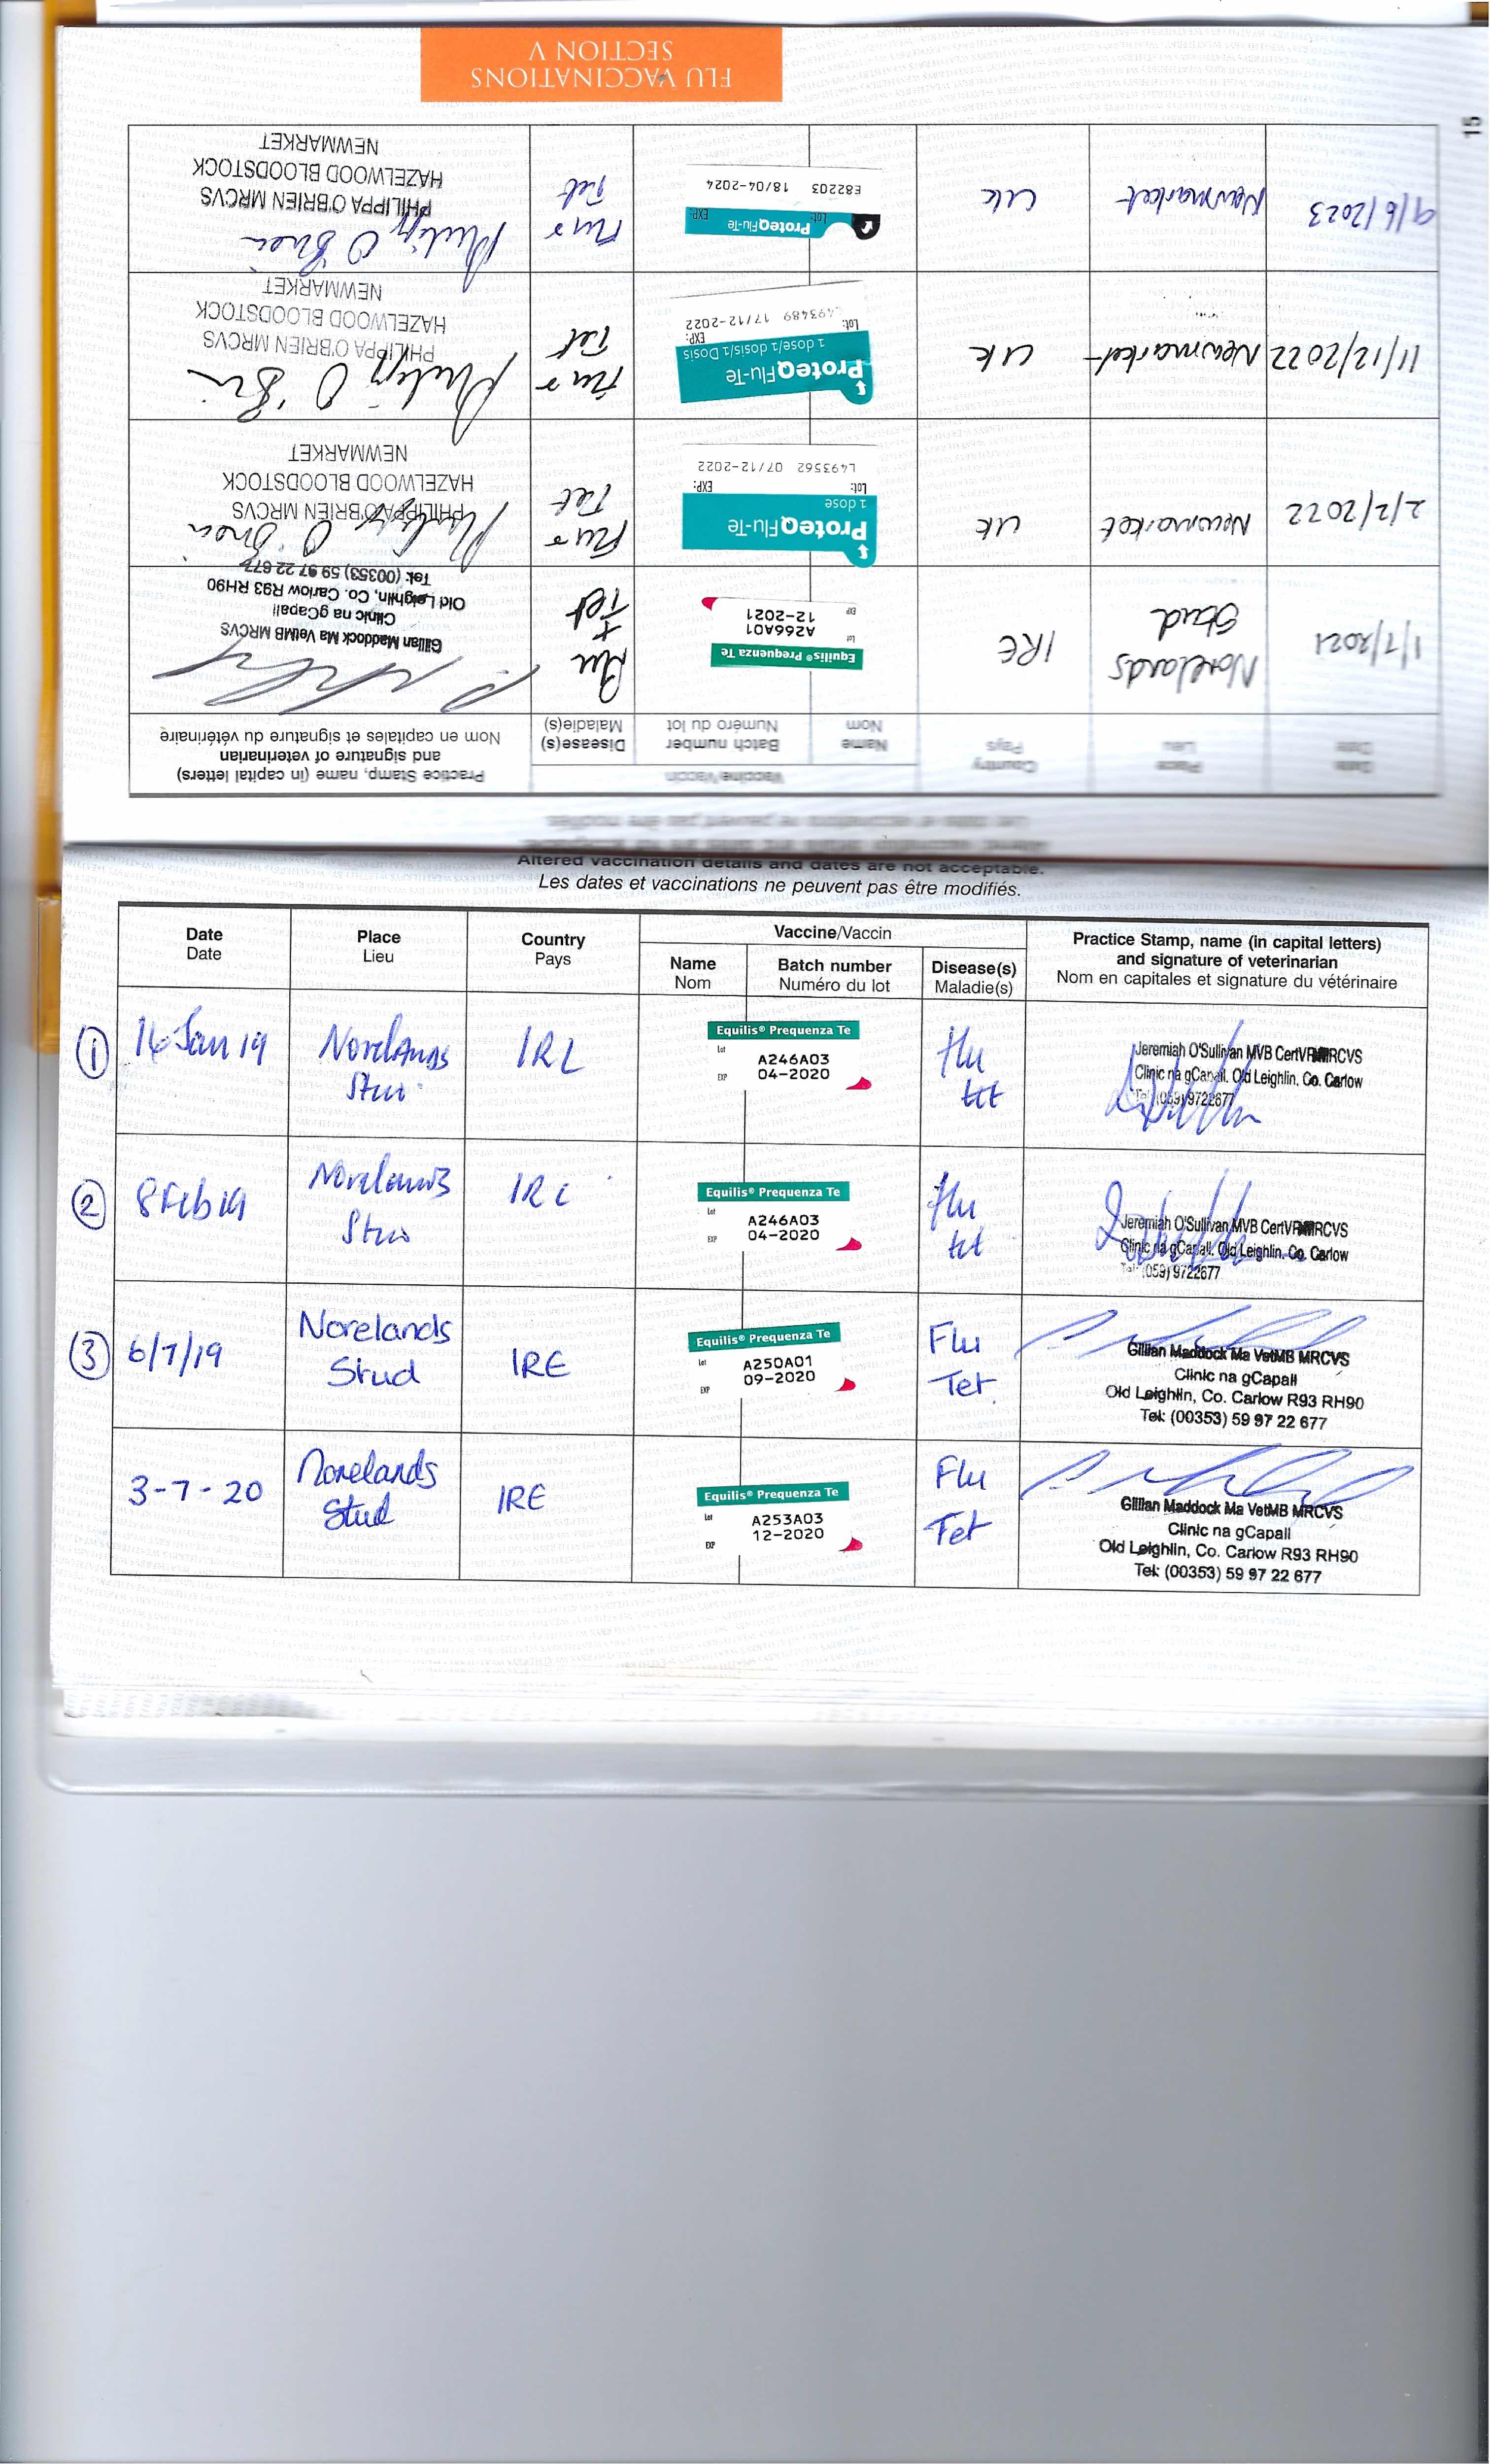 FLU VACCINATIONS
SECTION V
15
Les dates et vaccinations ne peuvent pas être modifiés.
Date
Date
Place
Lieu
Country
Pays
Vaccine/Vaccin
Name
Nom
Batch number
Numéro du lot
Disease(s)
Maladie(s)
Practice Stamp, name (in capital letters)
and signature of veterinarian
Nom en capitales et signature du vétérinaire
1/7/2021
Norelands
Stud
IRE
Equilis® Prequenza Te
Lot
A266A01
EXP
12-2021
Flu
+
Tet
Gillian Maddock Ma VetMB MRCVS
Clinic na gCapall
Old Leighlin, Co. Carlow R93 RH90
Tel: (00353) 59 97 22 677
2/2/2022
Newmarket
UK
ProteqFlu-Te
1 dose
Lot: EXP:
L493562 07/12-2022
Flu +
Tet
PHILIPPA O'BRIEN MRCVS
HAZELWOOD BLOODSTOCK
NEWMARKET
11/12/2022
Newmarket
UK
ProteqFlu-Te
1 dose/1 dosis/1 Dosis
Lot: EXP:
L493489 17/12-2022
Flu +
Tet
PHILIPPA O'BRIEN MRCVS
HAZELWOOD BLOODSTOCK
NEWMARKET
9/6/2023
Newmarket
UK
ProteqFlu-Te
Lot: EXP:
E82203 18/04-2024
Flu +
Tet
PHILIPPA O'BRIEN MRCVS
HAZELWOOD BLOODSTOCK
NEWMARKET
Altered vaccination details and dates are not acceptable.
Les dates et vaccinations ne peuvent pas être modifiés.
Date
Date
Place
Lieu
Country
Pays
Vaccine/Vaccin
Name
Nom
Batch number
Numéro du lot
Disease(s)
Maladie(s)
Practice Stamp, name (in capital letters)
and signature of veterinarian
Nom en capitales et signature du vétérinaire
1
16 Jan 19
Norelands
Stud
IRL
Equilis® Prequenza Te
Lot
A246A03
EXP
04-2020
flu
tet
Jeremiah O'Sullivan MVB CertVR MRCVS
Clinic na gCapall, Old Leighlin, Co. Carlow
Tel: (059) 9722677
2
8 Feb 19
Norelands
Stud
IRL
Equilis® Prequenza Te
Lot
A246A03
EXP
04-2020
flu
tet
Jeremiah O'Sullivan MVB CertVR MRCVS
Clinic na gCapall, Old Leighlin, Co. Carlow
Tel: (059) 9722677
3
6/7/19
Norelands
Stud
IRE
Equilis® Prequenza Te
Lot
A250A01
EXP
09-2020
Flu
Tet
Gillian Maddock Ma VetMB MRCVS
Clinic na gCapall
Old Leighlin, Co. Carlow R93 RH90
Tel: (00353) 59 97 22 677
3-7-20
Norelands
Stud
IRE
Equilis® Prequenza Te
Lot
A253A03
EXP
12-2020
Flu
Tet
Gillian Maddock Ma VetMB MRCVS
Clinic na gCapall
Old Leighlin, Co. Carlow R93 RH90
Tel: (00353) 59 97 22 677